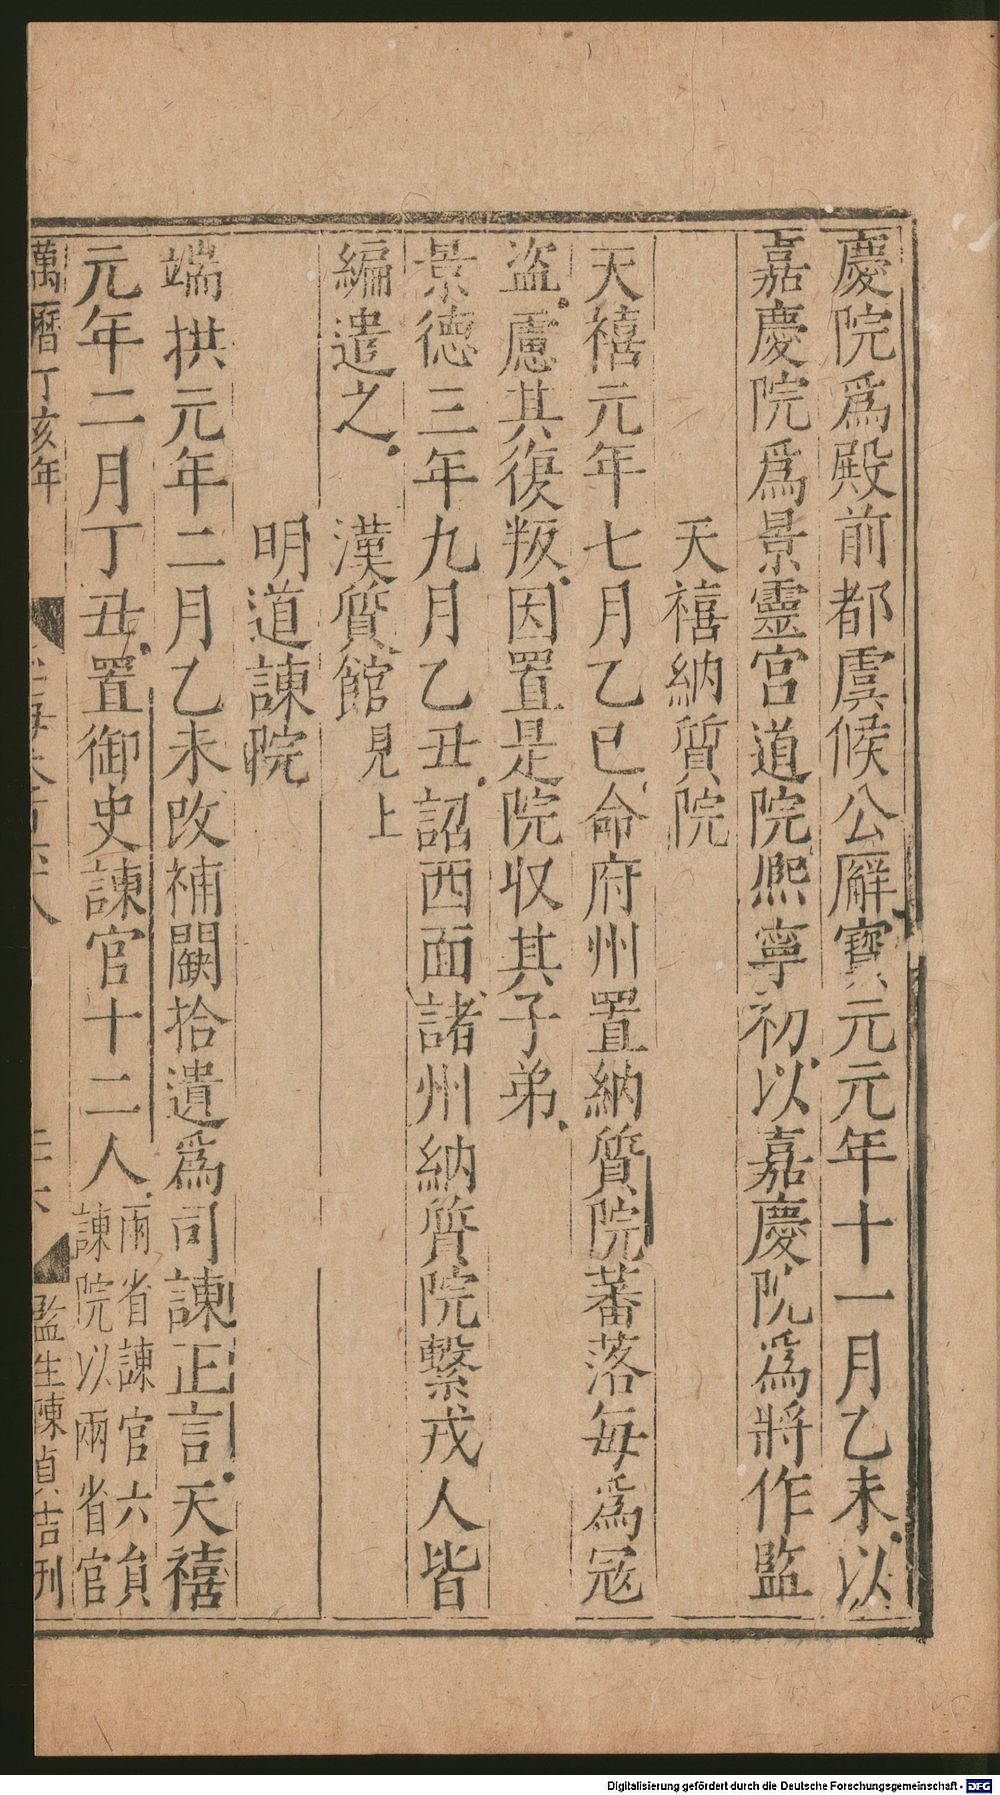 慶院爲殿前都虞候公廨寶元元年十一月乙未以
嘉慶院爲景靈宮道院熈寧初以嘉慶院爲將作監
天禧納質院
天禧元年七月乙巳命府州置納質院蕃落每爲冦
盜慮其復叛因置是院収其子弟
景德三年九月乙丑詔西面諸州納質院繫戎人皆
編遣之 漢質館見上
明道諫院
端拱元年二月乙未改補闕拾遺爲司諫正言天禧
元年二月丁丑置御史諫官十二人兩省諫官六員
諫院以兩省官
萬曆丁亥年
監生陳貞吉刊
Digitalisierung gefördert durch die Deutsche Forschungsgemeinschaft - DFG